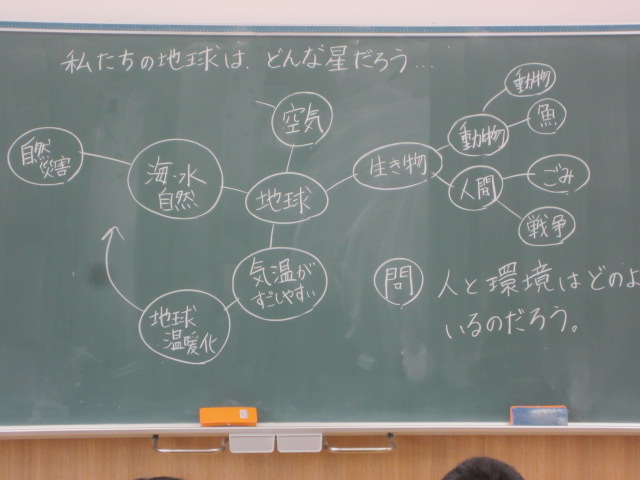 私たちの地球は、どんな星だろう…
空気
動物
魚
動物
自然
災害
海・水
自然
地球
生き物
人間
ごみ
戦争
気温が
すごしやすい
地球
温暖化
問
人と環境はどのよ
いるのだろう。